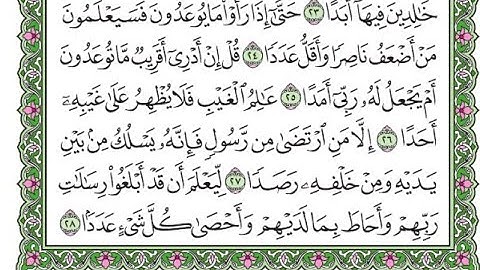 خَٰلِدِينَ فِيهَآ أَبَدًا ٢٣ حَتَّىٰٓ إِذَا رَأَوْا۟ مَا يُوعَدُونَ فَسَيَعْلَمُونَ
مَنْ أَضْعَفُ نَاصِرًا وَأَقَلُّ عَدَدًا ٢٤ قُلْ إِنْ أَدْرِىٓ أَقَرِيبٌ مَّا تُوعَدُونَ
أَمْ يَجْعَلُ لَهُۥ رَبِّىٓ أَمَدًا ٢٥ عَٰلِمُ ٱلْغَيْبِ فَلَا يُظْهِرُ عَلَىٰ غَيْبِهِۦٓ
أَحَدًا ٢٦ إِلَّا مَنِ ٱرْتَضَىٰ مِن رَّسُولٍ فَإِنَّهُۥ يَسْلُكُ مِنۢ بَيْنِ
يَدَيْهِ وَمِنْ خَلْفِهِۦ رَصَدًا ٢٧ لِّيَعْلَمَ أَن قَدْ أَبْلَغُوا۟ رِسَٰلَٰتِ
رَبِّهِمْ وَأَحَاطَ بِمَا لَدَيْهِمْ وَأَحْصَىٰ كُلَّ شَىْءٍ عَدَدًۢا ٢٨